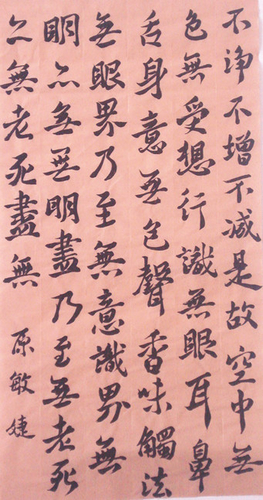 不淨不增不減是故空中無
色無受想行識無眼耳鼻
舌身意無色聲香味觸法
無眼界乃至無意識界無
明亦無無明盡乃至無老死
亦無老死盡無
原敏婕